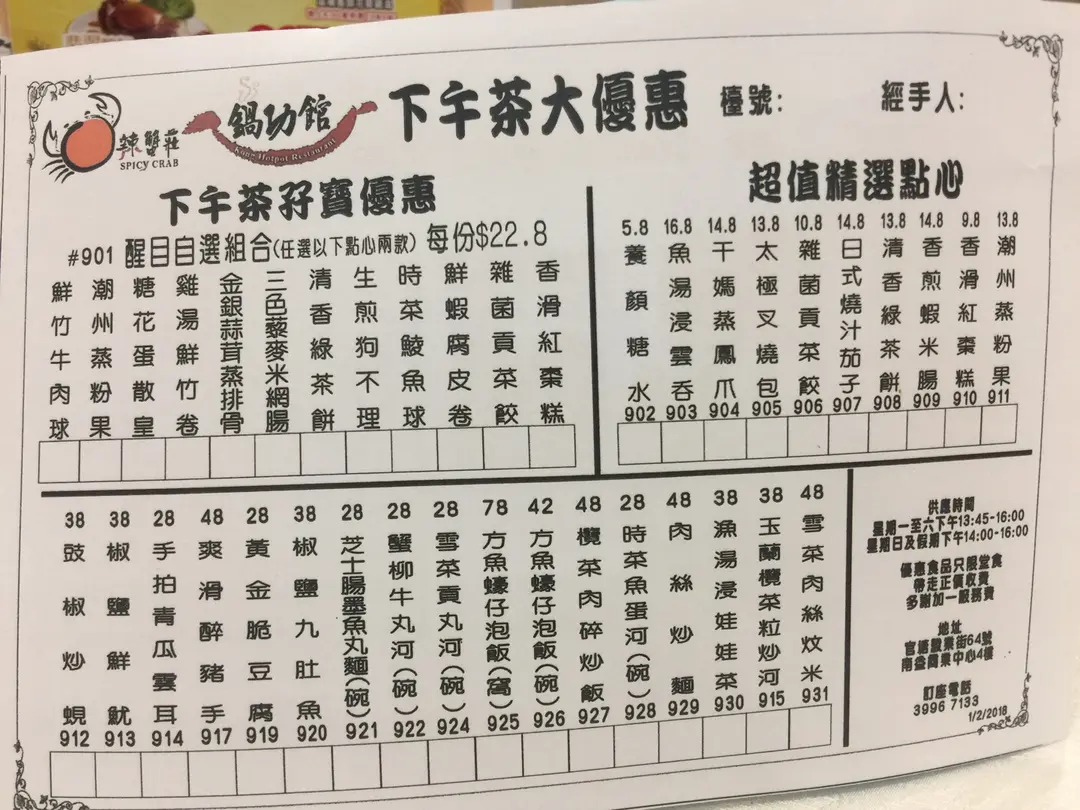 辣蟹莊
SPICY CRAB
鍋功館
Kung Hotpot Restaurant
下午茶大優惠
檯號:
經手人:
下午茶孖寶優惠
#901 醒目自選組合(任選以下點心兩款) 每份$22.8
鮮竹牛肉球
潮州蒸粉果
糖花蛋散皇
雞湯鮮竹卷
金銀蒜茸蒸排骨
三色藜麥米網腸
清香綠茶餅
生煎狗不理
時菜鯪魚球
鮮蝦腐皮卷
雜菌貢菜餃
香滑紅棗糕
超值精選點心
5.8 養顏糖水 902
16.8 魚湯浸雲吞 903
14.8 干媽蒸鳳爪 904
13.8 太極叉燒包 905
10.8 雜菌貢菜餃 906
14.8 日式燒汁茄子 907
13.8 清香綠茶餅 908
14.8 香煎蝦米腸 909
9.8 香滑紅棗糕 910
13.8 潮州蒸粉果 911
38 豉椒炒蜆 912
38 椒鹽鮮魷 913
28 手拍青瓜雲耳 914
48 爽滑醉豬手 917
28 黃金脆豆腐 919
38 椒鹽九肚魚 920
28 芝士腸墨魚丸麵(碗) 921
28 蟹柳牛丸河(碗) 922
28 雪菜貢丸河(碗) 924
78 方魚蠔仔泡飯(窩) 925
42 方魚蠔仔泡飯(碗) 926
48 欖菜肉碎炒飯 927
28 時菜魚蛋河(碗) 928
48 肉絲炒麵 929
38 漁湯浸娃娃菜 930
38 玉蘭欖菜粒炒河 915
48 雪菜肉絲炆米 931
供應時間
星期一至六下午13:45-16:00
星期日及假期下午14:00-16:00
優惠食品只限堂食
帶走正價收費
多謝加一服務費
地址
官塘鴻業街64號
南益商業中心4樓
訂座電話
3996 7133
1/2/2018